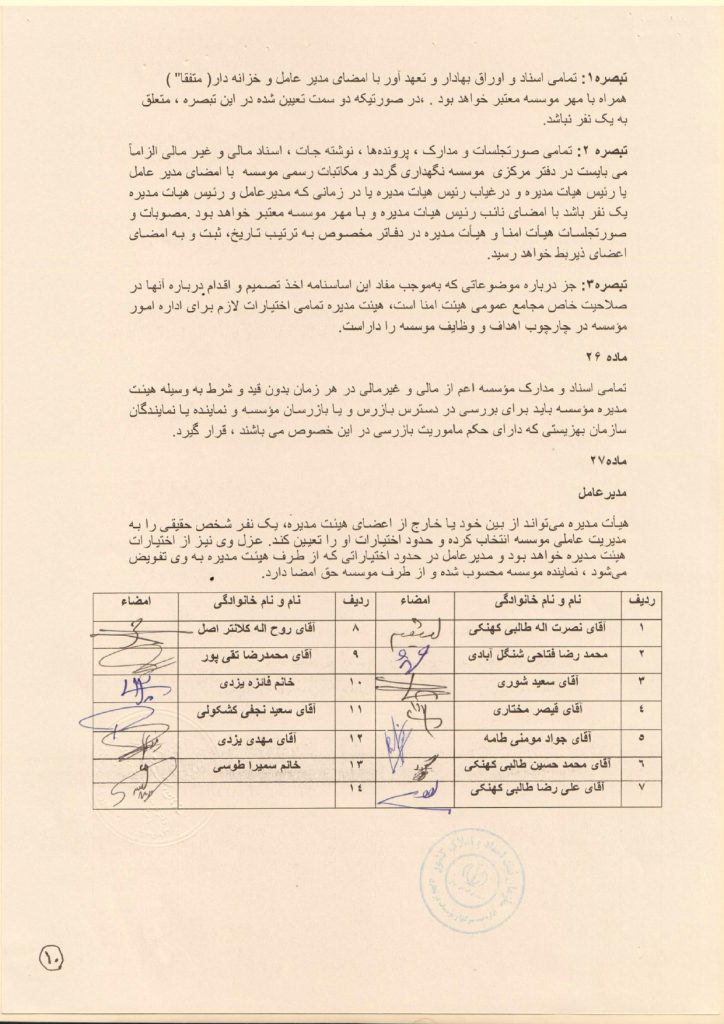 تبصره۱: تمامی اسناد و اوراق بهادار و تعهد آور با امضای مدیر عامل و خزانه دار( متفقا" )
همراه با مهر موسسه معتبر خواهد بود . ،در صورتیکه دو سمت تعیین شده در این تبصره ، متعلق
به یک نفر نباشد.
تبصره ۲: تمامی صورتجلسات و مدارک ، پرونده‌ها ، نوشته جات ، اسناد مالی و غیر مالی الزاماً
می بایست در دفتر مرکزی موسسه نگهداری گردد و مکاتبات رسمی موسسه با امضای مدیر عامل
یا رئیس هیات مدیره و درغیاب رئیس هیات مدیره یا در زمانی که مدیرعامل و رئیس هیات مدیره
یک نفر باشد با امضای نائب رئیس هیات مدیره و با مهر موسسه معتبر خواهد بود .مصوبات و
صورتجلسات هیأت امنا و هیأت مدیره در دفاتر مخصوص به ترتیب تاریخ، ثبت و به امضای
اعضای ذیربط خواهد رسید.
تبصره۳: جز درباره موضوعاتی که به‌موجب مفاد این اساسنامه اخذ تصمیم و اقدام درباره آنها در
صلاحیت خاص مجامع عمومی هیئت امنا است، هیئت مدیره تمامی اختیارات لازم برای اداره امور
مؤسسه در چارچوب اهداف و وظایف موسسه را داراست.
ماده ۲۶
تمامی اسناد و مدارک مؤسسه اعم از مالی و غیرمالی در هر زمان بدون قید و شرط به وسیله هیئت
مدیره مؤسسه باید برای بررسی در دسترس بازرس و یا بازرسان مؤسسه و نماینده یا نمایندگان
سازمان بهزیستی که دارای حکم ماموریت بازرسی در این خصوص می باشند ، قرار گیرد.
ماده۲۷
مدیرعامل
هیأت مدیره می‌تواند از بین خود یا خارج از اعضای هیئت مدیره، یک نفر شخص حقیقی را به
مدیریت عاملی موسسه انتخاب کرده و حدود اختیارات او را تعیین کند. عزل وی نیز از اختیارات
هیئت مدیره خواهد بود و مدیرعامل در حدود اختیاراتی که از طرف هیئت مدیره به وی تفویض
می‌شود ، نماینده موسسه محسوب شده و از طرف موسسه حق امضا دارد.
ردیف نام و نام خانوادگی امضاء ردیف نام و نام خانوادگی امضاء
۱ آقای نصرت اله طالبی کهنکی ۸ آقای روح اله کلانتر اصل
۲ محمد رضا فتاحی شنگل آبادی ۹ آقای محمدرضا تقی پور
۳ آقای سعید شوری ۱۰ خانم فائزه یزدی
۴ آقای قیصر مختاری ۱۱ آقای سعید نجفی کشکولی
۵ آقای جواد مومنی طامه ۱۲ آقای مهدی یزدی
۶ آقای محمد حسین طالبی کهنکی ۱۳ خانم سمیرا طوسی
۷ آقای علی رضا طالبی کهنکی ۱۴
۱۰